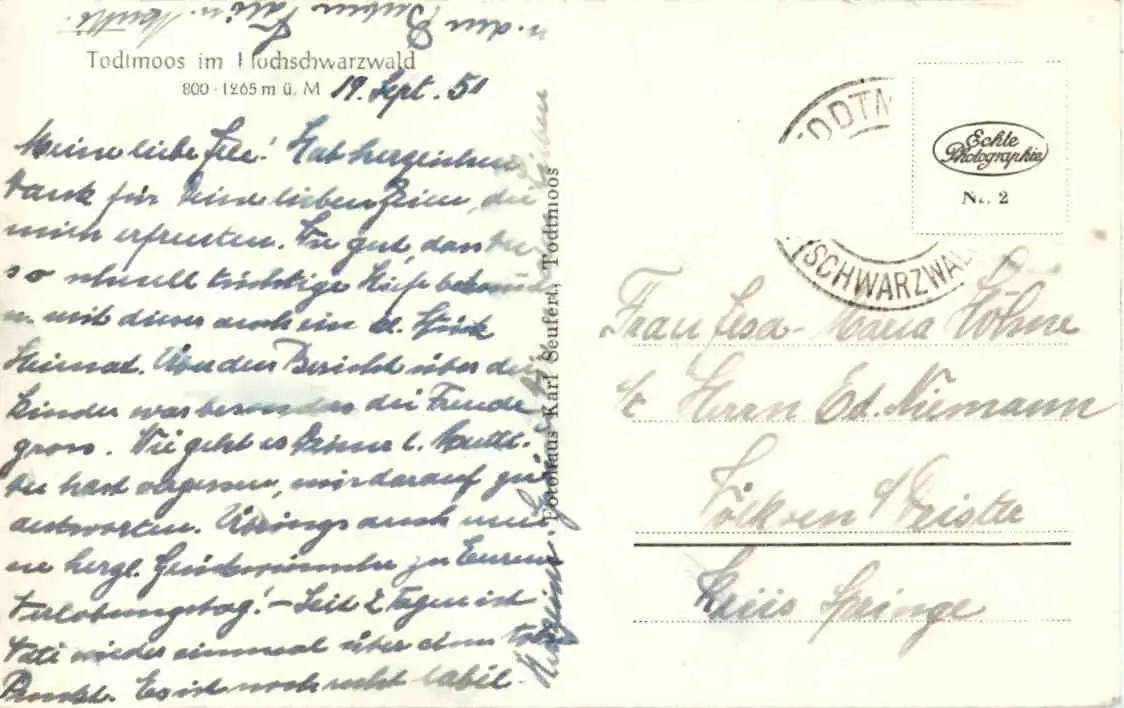 Todtmoos im Hochschwarzwald
800-1265 m ü. M
19. Sept. 51
Meine liebe ! Hab herzlichen
Dank für Deine lieben Zeilen, die
mich erfreuten. Wie gut, dass
so schnell tüchtige Hilfe
u. mit dieser auch ein Stück
Heimat. Über den Bericht über die
Kinder war besonders die Freude
gross. Wie geht es Deiner l. Mutti.
Du hast vergessen, mir darauf zu
antworten. Übrings auch mei-
ne herzl. Glückwünsche zu Eurem
Verlobungstag! - Seit 2 Tagen ist
Vati wieder einmal über dem toten
Punkt. Es ist noch recht labil.
Herzlichst
u. den Buben Vati u. Mutti
Fotohaus Karl Seufert, Todtmoos
TODTM
SCHWARZWAL
Echte
Photographie
Nr. 2
Frau -Maria
c/o Herrn Ed. Niemann
Völksen / Deister
Kreis Springe